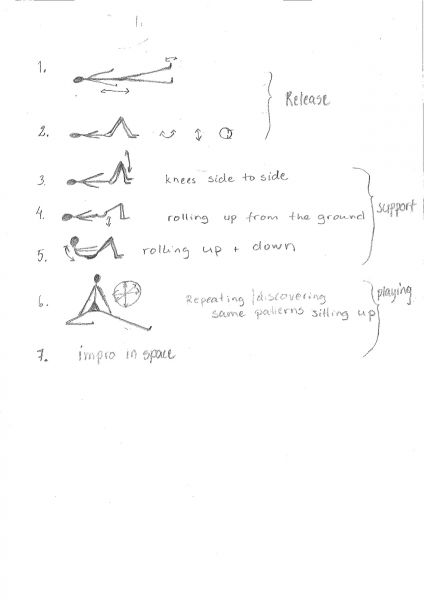 1.
1.
Release
2.
3. knees side to side
support
4. rolling up from the ground
5. rolling up + down
playing
6. Repeating/discovering
same patterns sitting up
7. impro in space